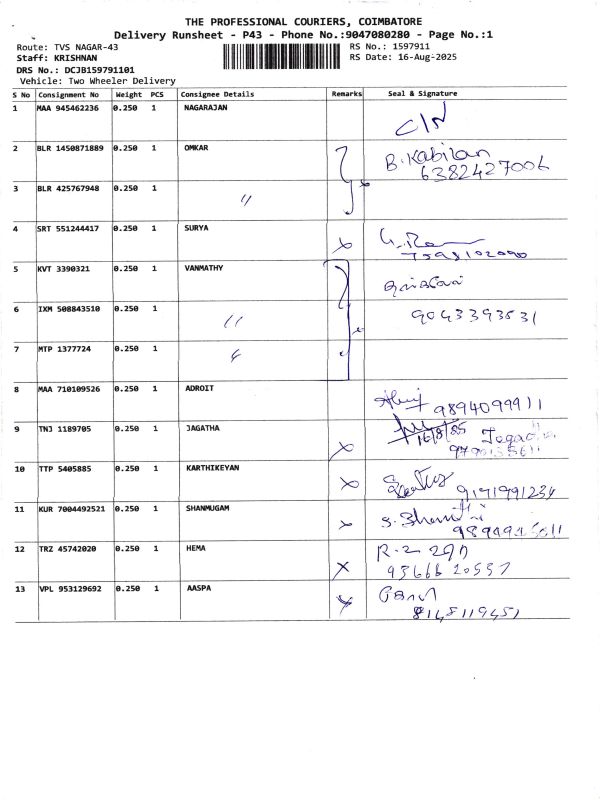 THE PROFESSIONAL COURIERS, COIMBATORE
Delivery Runsheet - P43 - Phone No.:9047080280 - Page No.:1
Route: TVS NAGAR-43 RS No.: 1597911
Staff: KRISHNAN RS Date: 16-Aug-2025
DRS No.: DCJB159791101
Vehicle: Two Wheeler Delivery
S No Consignment No Weight PCS Consignee Details Remarks Seal & Signature
1 MAA 945462236 0.250 1 NAGARAJAN
2 BLR 1450871889 0.250 1 OMKAR B.Kabilan
6382427006
3 BLR 425767948 0.250 1 "
4 SRT 551244417 0.250 1 SURYA x
5 KVT 3390321 0.250 1 VANMATHY
6 IXM 508843510 0.250 1 "
7 MTP 1377724 0.250 1 "
8 MAA 710109526 0.250 1 ADROIT 9894099911
9 TNJ 1189705 0.250 1 JAGATHA x 16/8/25 Jagatha
10 TTP 5405885 0.250 1 KARTHIKEYAN x 9191991234
11 KUR 7004492521 0.250 1 SHANMUGAM x
12 TRZ 45742020 0.250 1 HEMA x
13 VPL 953129692 0.250 1 AASPA x
8148119451